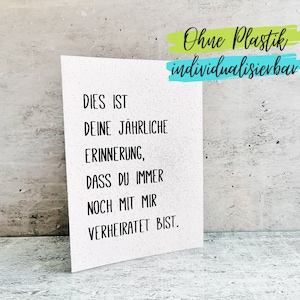 Ohne Plastik
individualisierbar
DIES IST
DEINE JÄHRLICHE
ERINNERUNG,
DASS DU IMMER
NOCH MIT MIR
VERHEIRATET BIST.